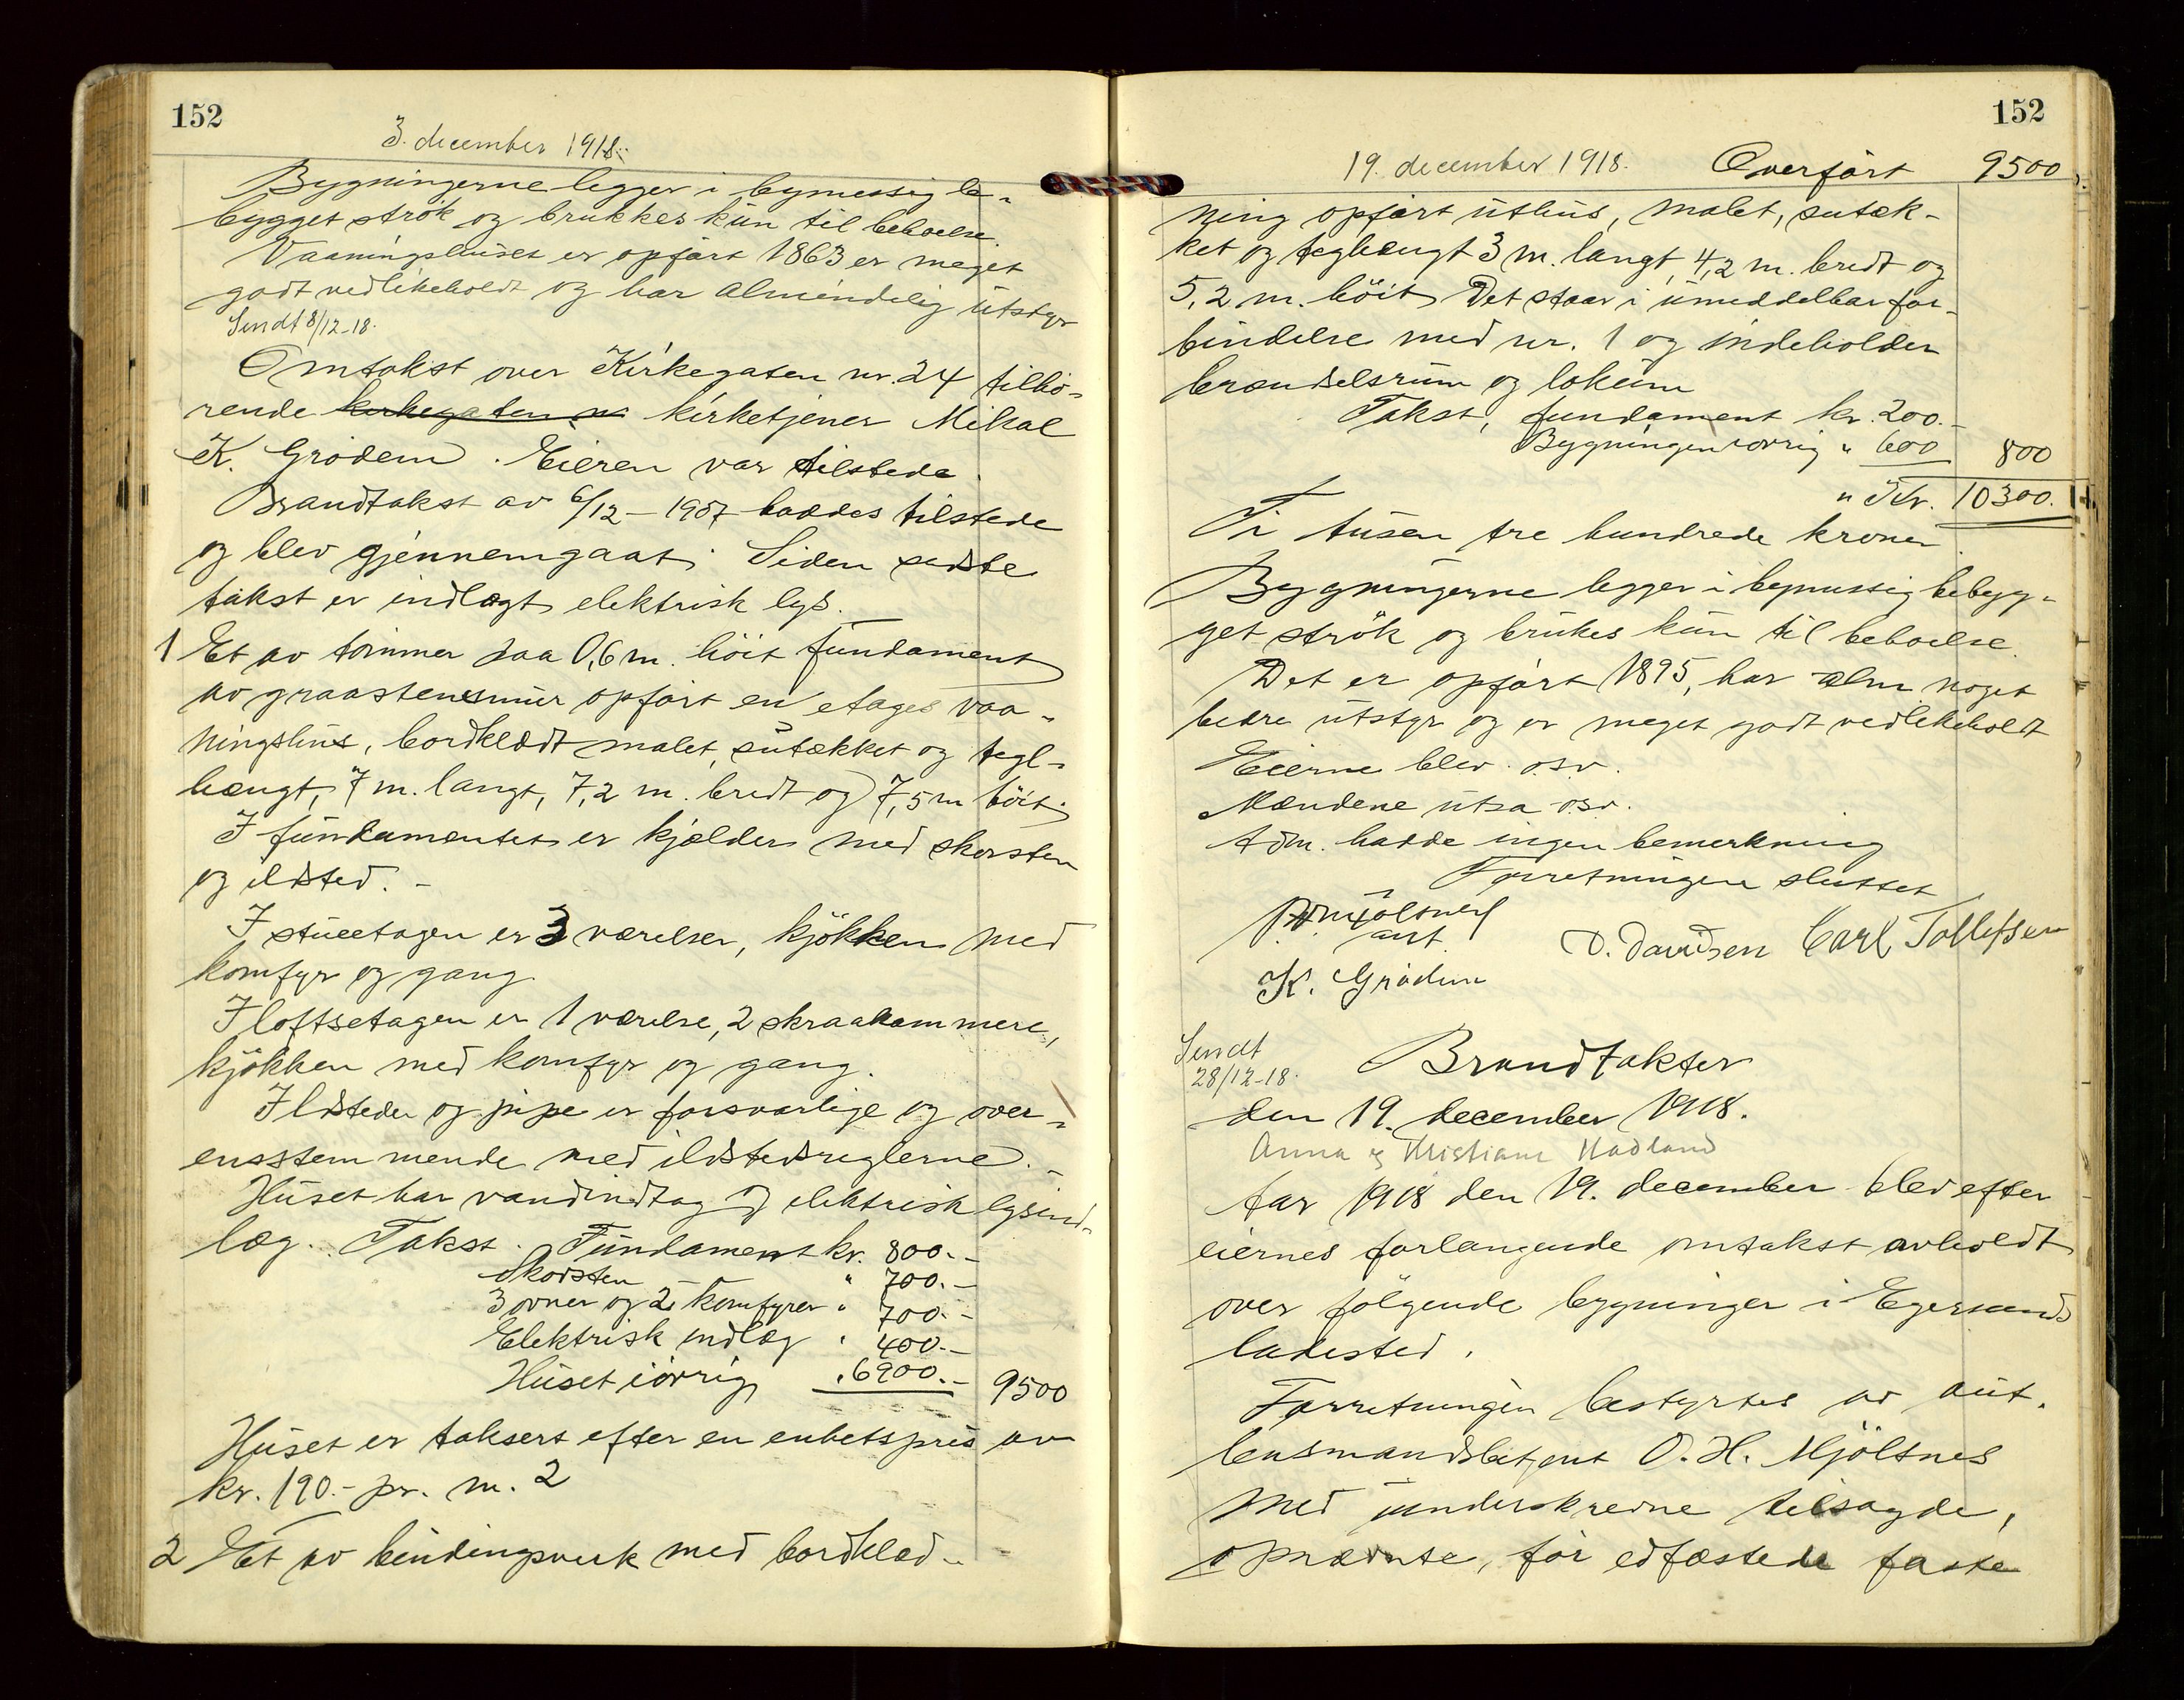 152
3. december 1918.
Bygningerne legger i bymessig be-
bygget strök og brukkes kun til beboelse.
Vaaningshuset er opfört 1863 er meget
godt vedlikeholdt og har almindelig utstyr
Sendt 8/12-18.
Omtakst over Kirkegaten nr. 24 tilhö-
rende kirkegaten n kirketjener Mikal
K. Grödem. Eieren var tilstede.
Brandtakst av 6/12-1907 haddes tilstede
og blev gjennemgaat. Siden sidste
takst er indlagt elektrisk lys.
1 Et av tömmer paa 0,6 m. höit fundament
av graastensmur opfört en etages vaa-
ningshus, bordklædt malet, sutækket og tegl-
hængt, 7 m. langt, 7,2 m. bredt og 7,5 m höit.
I fundamentet er kjælder med skorsten
og ildsted. -
I stueetagen er 3 værelser, kjökken med
komfyr og gang.
I loftsetagen er 1 værelse, 2 skraakammere,
kjökken med komfyr og gang.
Ildsteder og pipe er forsvarlige og over-
ensstemmende med ildstedsreglerne. -
Huset har vandindtag og elektrisk lysind-
læg. Takst. Fundament kr. 800.-
Skorsten " 700.-
3 ovner og 2 komfyrer " 700.-
Elektrisk indlæg " 400.-
Huset iövrig " 6900.- 9500
Huset er taksert efter en enhetspris av
kr. 190.- pr. m. 2
2 Et av bindingsverk med bordklæd-
152
19. december 1918. Overfört 9500
ning opfört uthus, malet, sutæk-
ket og teglhængt 3 m. langt, 4,2 m. bredt og
5,2 m. höit. Det staar i umiddelbar for-
bindelse med nr. 1 og indeholder
brændselsrum og lokum
Takst, fundament kr. 200.-
Bygningen iövrig " 600 800
" Kr. 10300.
Ti tusen tre hundrede kroner
Bygningerne legger i bymessig bebyg-
get strök og brukes kun til beboelse.
Det er opfört 1895, har alm noget
bedre utstyr og er meget godt vedlikeholdt
Eierne blev. o.s.v.
Mændene utsa o.s.v.
Adm. hadde ingen bemerkning
Forretningen sluttet
Mjölsnes
aut.
O. Davidsen Carl Tollefsen
K. Grödem
Sendt
28/12-18.
Brandtakter
den 19. december 1918.
Anna og Kristiane Hadland
Aar 1918 den 19. december blev efter
eiernes forlangende omtakst avholdt
over fölgende bygninger i Egersunds
ladested.
Forretningen bestyrtes av aut.
lensmandsbetjent O. H. Mjölsnes
med underskrevne tilsagde,
opnævnte, för edfæstede faste